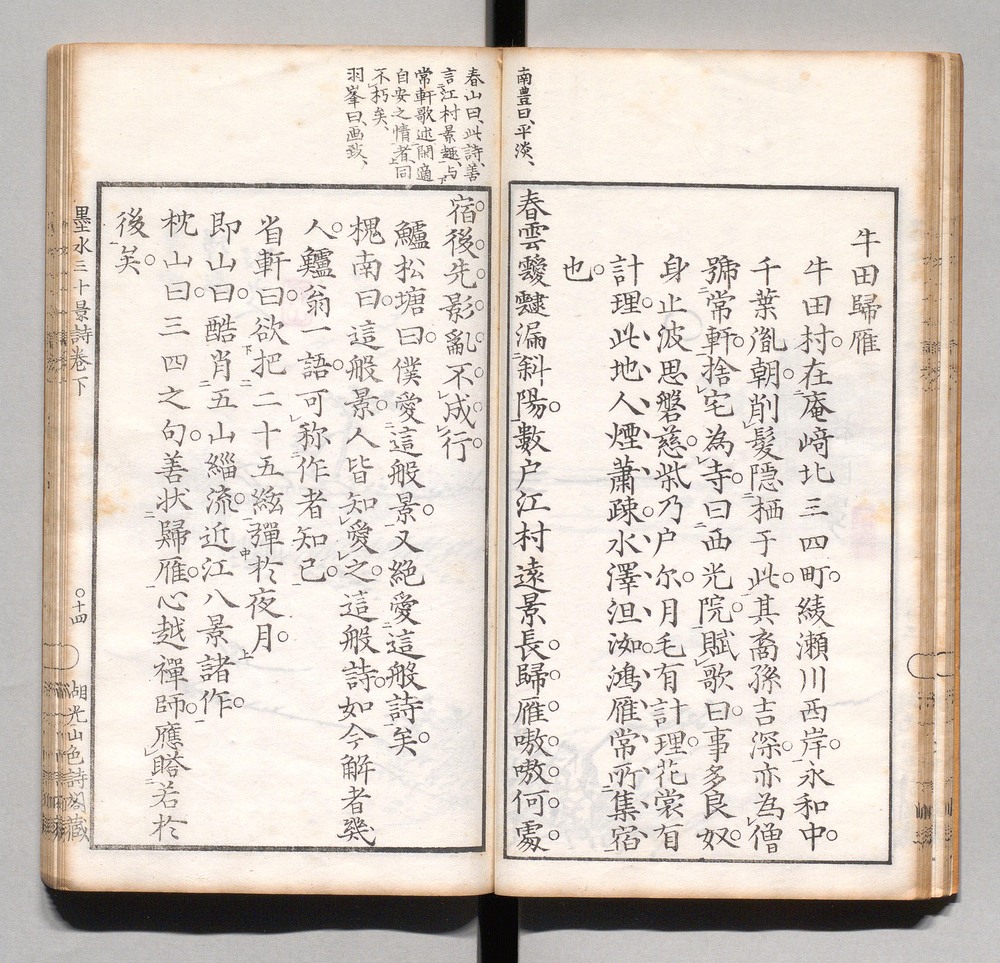 南豊曰、平淡、
牛田歸雁
牛田村。在庵﨑北三四町。綾瀬川西岸。永和中。
千葉胤朝。削髪隠栖于此。其裔孫吉深。亦為僧
號常軒。捨宅為寺。曰西光院。賦歌曰。事多良奴。
身止波思磐。慈柴乃户尓。月毛有計理。花裳有
計理。此地人煙蕭疎。水澤沮洳。鴻雁常所集宿
也。
春雲靉靆漏斜陽。數户江村遠景長。歸雁嗷嗷何處
春山曰、此詩、善
言江村景趣、与
常軒歌述閑適
自安之情者、同
不朽矣、
羽峯曰、画致、
宿。後先影亂不成行。
鱸松塘曰。僕愛這般景。又絶愛這般詩矣。
槐南曰。這般景。人皆知愛之。這般詩。如今解者幾
人。鱸翁一語。可称作者知己。
省軒曰。欲把二十五絃。彈於夜月。
即山曰。酷肖五山緇流。近江八景諸作。
枕山曰。三四之句。善状歸雁。心越禅師。應瞠若於
後矣。
墨水三十景詩卷下
〇十四
湖光山色詩閣藏